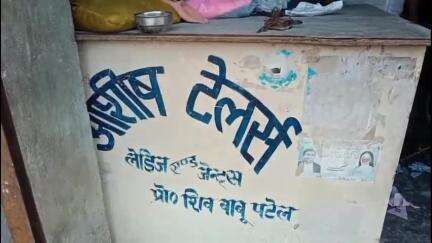 आशीष टेलर्स
लेडिज एण्ड जेन्ट्स
प्रो० शिव बाबू पटेल